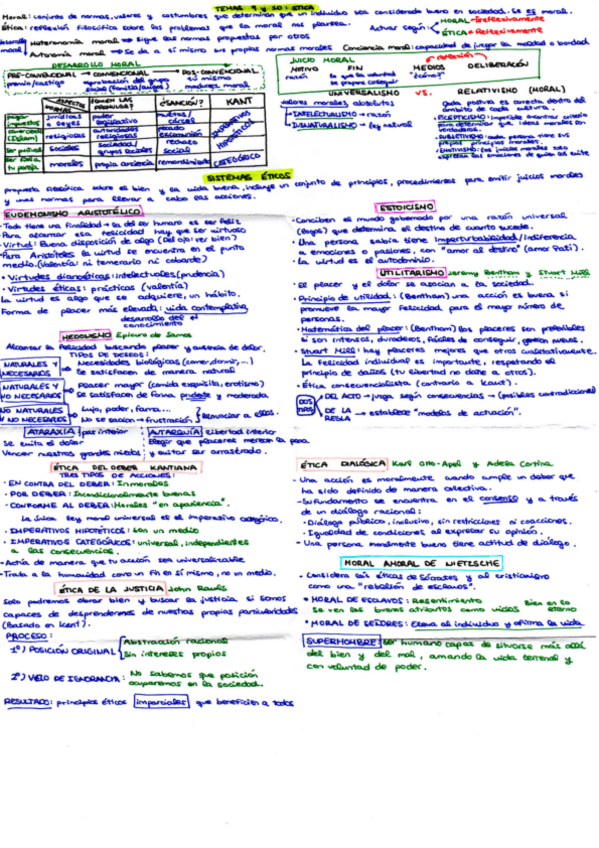 TEMAS 9 y 10: ÉTICA
Moral: conjunto de normas, valores y costumbres que determinan que un individuo sea considerado bueno en sociedad. Se ES moral.
Ética: reflexión filosófica sobre los problemas que la moral nos plantea. Actuar según: MORAL → Irreflexivamente
ÉTICA → Reflexivamente
Heteronomía moral → sigue las normas propuestas por otros
Autonomía moral → Se da a sí mismo sus propias normas morales Conciencia moral: capacidad de juzgar la maldad o bondad.
DESARROLLO MORAL
PRE-CONVENCIONAL → CONVENCIONAL → POS-CONVENCIONAL
premio/castigo aprobación del grupo social (familia/amigos) tú mismo madurez moral
JUICIO MORAL
MOTIVO FIN MEDIOS DELIBERACIÓN
razón lo que la voluntad se propone conseguir ¿cómo?
ASPECTO NORMAS ¿QUIÉN LAS PROMULGA? ¿SANCIÓN? KANT
pagar impuestos jurídicas o leyes poder legislativo multas/cárcel
religiosas autoridades religiosas pecado excomunión
Ser puntual sociales sociedad/grupos sociales rechazo social
Ser fiel a tu pareja morales propia conciencia remordimiento CATEGÓRICO
IMPERATIVOS HIPOTÉTICOS
UNIVERSALISMO VS. RELATIVISMO (MORAL)
valores morales, absolutos
INTELECTUALISMO → razón
IUSNATURALISMO → ley natural
Cada postura es correcta dentro del ámbito de cada cultura.
ESCEPTICISMO: imposible encontrar criterio para determinar qué ideas morales son verdaderas.
SUBJETIVISMO: cada persona tiene sus propios principios morales.
EMOTIVISMO: los juicios morales solo expresan las emociones de quien los emite
SISTEMAS ÉTICOS
propuesta filosófica sobre el bien y la vida buena, incluye un conjunto de principios, procedimientos para emitir juicios morales
y unas normas para llevar a cabo las acciones.
EUDEMONISMO ARISTOTÉLICO
· Todo tiene una finalidad → la del ser humano es ser feliz
· Para alcanzar esa felicidad hay que ser virtuoso
· Virtud: Buena disposición de algo (Del ojo: ver bien)
· Para Aristóteles la virtud se encuentra en el punto
medio. (Valentía: ni temerario ni cobarde)
· Virtudes dianoéticas: intelectuales (prudencia)
· Virtudes éticas: prácticas (valentía)
La virtud es algo que se adquiere, un hábito.
Forma de placer más elevada: vida contemplativa,
desarrollo del conocimiento
HEDONISMO Epicuro de Samos
Alcanzar la felicidad buscando placer y ausencia de dolor.
TIPOS DE DESEOS:
NATURALES Y NECESARIOS
Necesidades biológicas (comer, dormir, ...)
Se satisfacen de manera natural
NATURALES Y NO NECESARIOS
Placeres mayor (comida exquisita, erotismo)
Se satisfacen de forma prudente y moderada
NO NATURALES Y NO NECESARIOS
Lujo, poder, fama...
No se sacian → frustración
Renunciar a ellos.
ATARAXIA: paz interior AUTARQUÍA: libertad interior
Se evita el dolor Elegir que placeres merecen la pena
Vencer nuestros grandes miedos y evitar ser arrastrado.
ÉTICA DEL DEBER KANTIANA
TRES TIPOS DE ACCIONES:
· EN CONTRA DEL DEBER: Inmorales
· POR DEBER: Incondicionalmente buenas
· CONFORME AL DEBER: Morales "en apariencia".
La única ley moral universal es el imperativo categórico.
· IMPERATIVOS HIPOTÉTICOS: son un medio
· IMPERATIVOS CATEGÓRICOS: universal, independientes
a las consecuencias.
· Actúa de manera que tu acción sea universalizable
· Trata a la humanidad como un fin en sí mismo, no un medio.
ÉTICA DE LA JUSTICIA John Rawls
Solo podremos obrar bien y buscar la justicia si somos
capaces de desprendernos de nuestras propias particularidades
(Basado en Kant).
PROCESO:
1º) POSICIÓN ORIGINAL
Abstracción racional
Sin intereses propios
2º) VELO DE IGNORANCIA: No sabemos que posición
ocuparemos en la sociedad.
RESULTADO: principios éticos imparciales que beneficien a todos
ESTOICISMO
· Conciben el mundo gobernado por una razón universal
(logos) que determina el destino de cuanto sucede.
· Una persona sabia tiene imperturbabilidad/indiferencia
a emociones o pasiones, con "amor al destino" (amor Fati).
· La virtud es el autodominio.
UTILITARISMO Jeremy Bentham y Stuart Mill
· El placer y el dolor se asocian a la sociedad.
· Principio de utilidad: (Bentham) una acción es buena si
promueve la mayor felicidad para el mayor número de
personas.
· Matemática del placer: (Bentham) los placeres son preferibles
si son intensos, duraderos, fáciles de conseguir, generan menos.
· Stuart Mill: hay placeres mejores que otros cualitativamente.
La felicidad individual es importante, respetando el
principio de daños (tu libertad no dañe a otros).
· Ética consecuencialista (contraria a Kant).
DOS TIPOS
DEL ACTO → juzga según consecuencias → (posibles contradicciones)
DE LA REGLA → establece "modelos de actuación".
ÉTICA DIALÓGICA Karl Otto-Apel y Adela Cortina
· Una acción es moralmente cuando cumple un deber que
ha sido definido de manera colectiva.
· Su fundamento se encuentra en el consenso y a través
de un diálogo racional:
· Diálogo público, inclusivo, sin restricciones ni coacciones.
· Igualdad de condiciones al expresar su opinión.
· Una persona moralmente buena tiene actitud de diálogo.
MORAL AMORAL DE NIETZSCHE
· Considera las éticas de Sócrates y al cristianismo
como una "rebelión de esclavos".
· MORAL DE ESCLAVOS: Resentimiento
Se ven los buenos atributos como vicios
· MORAL DE SEÑORES: Eleva al individuo y afirma la vida
SUPERHOMBRE: Ser humano capaz de situarse más allá
del bien y del mal, amando la vida terrenal y
con voluntad de poder.